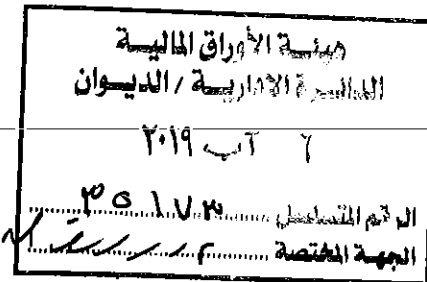 هيئة الأوراق المالية
الدائرة الادارية / الديوان
٦ آب ٢٠١٩
الرقم المتسلسل
الجهة المختصة